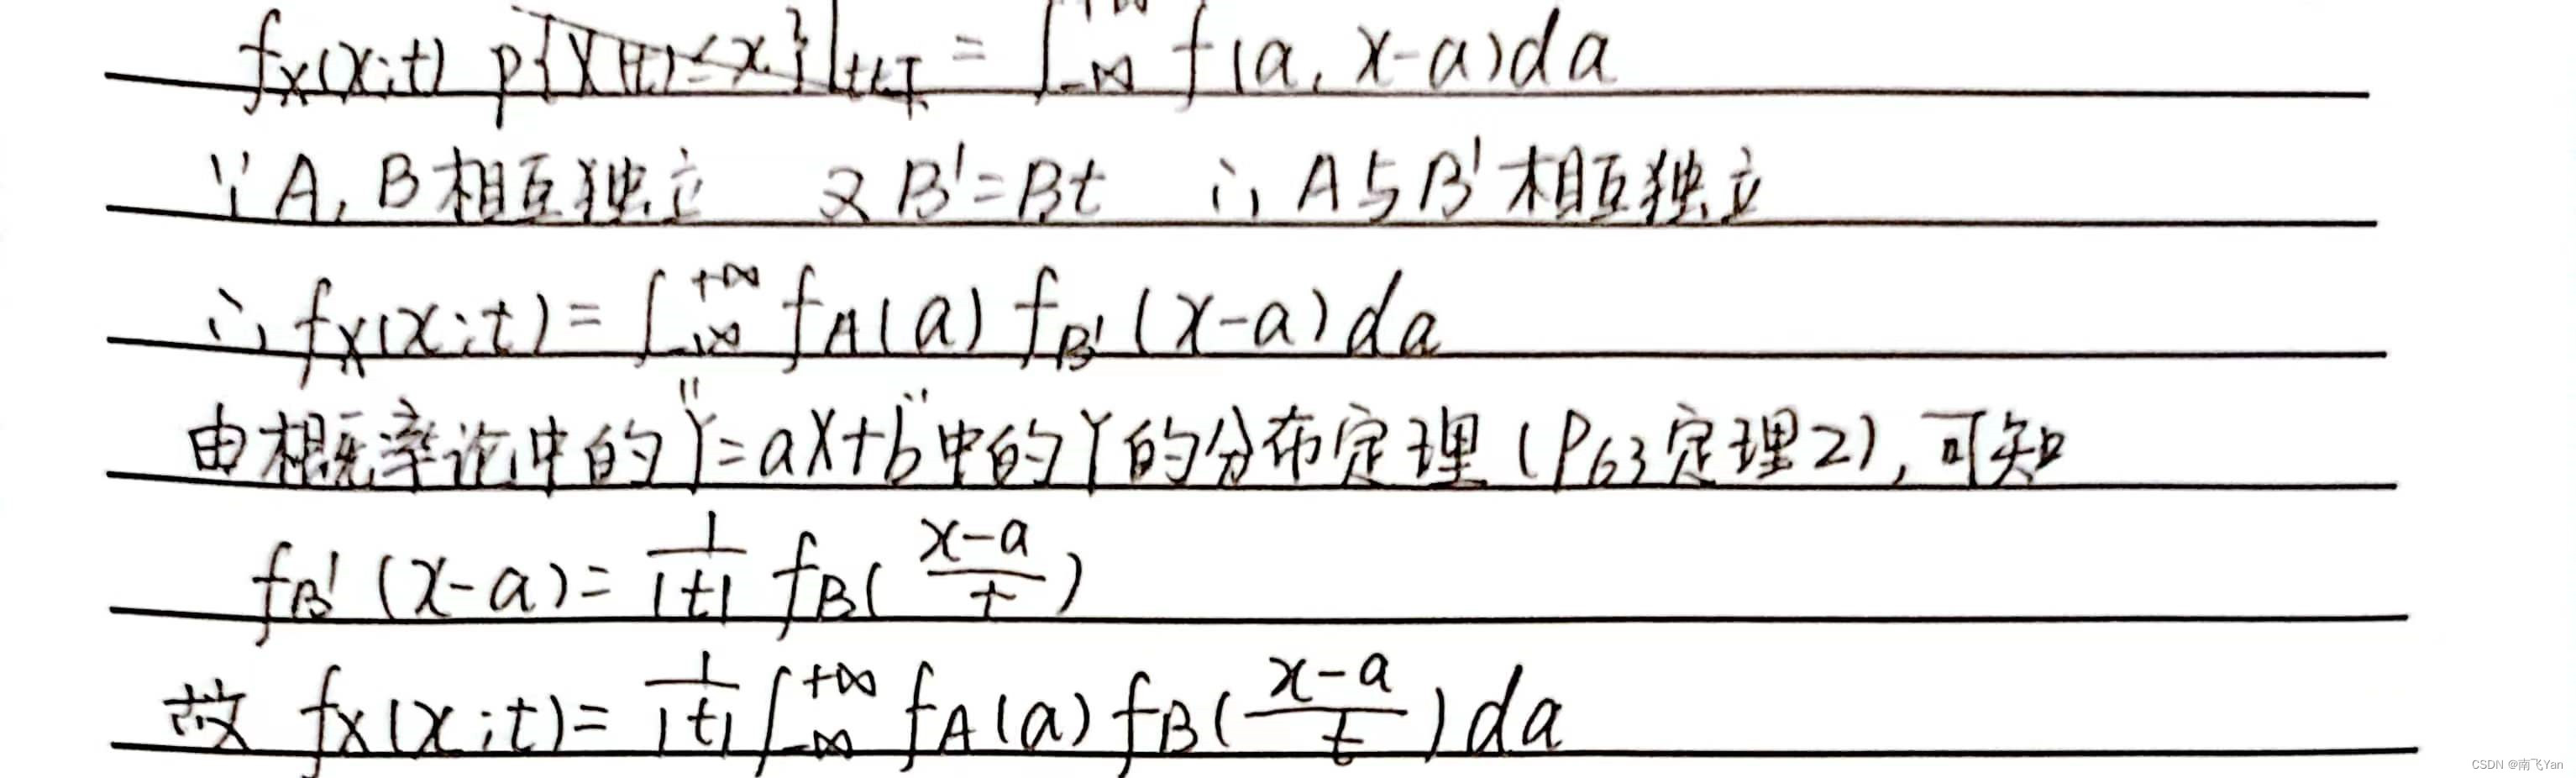 fx(x;t) P{X(t)≤x}|t∈T = ∫_{-∞}^{+∞} f(a, x-a)da
∵ A, B相互独立 又B'=Bt ∴ A与B'相互独立
∴ fx(x;t)=∫_{-∞}^{+∞} fA(a) fB'(x-a)da
由概率论中的"Y=aX+b"中的Y的分布定理(P63定理2), 可知
fB'(x-a)= 1/|t| fB((x-a)/t)
故 fx(x;t)= 1/|t| ∫_{-∞}^{+∞} fA(a) fB((x-a)/t)da
CSDN @南飞Yan